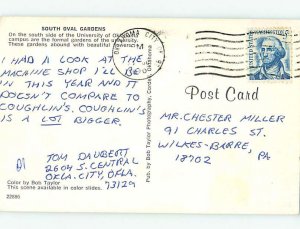 SOUTH OVAL GARDENS
On the south side of the University of
campus are the formal gardens of the
These gardens abound with beautiful
OKLAHOMA CITY,
I HAD A LOOK AT THE
MACHINE SHOP I'LL BE
IN THIS YEAR AND IT
DOESN'T COMPARE TO
COUGHLIN'S. COUGHLIN'S
IS A LOT BIGGER.
TOM DAUBERT
2604 S. CENTRAL
OKLA. CITY, OKLA.
73129
Color by Bob Taylor
This scene available in color slides.
22880
Pub. by Bob Taylor Photography, Oklahoma
Post Card
MR. CHESTER MILLER
91 CHARLES ST.
WILKES-BARRE,
18702 PA